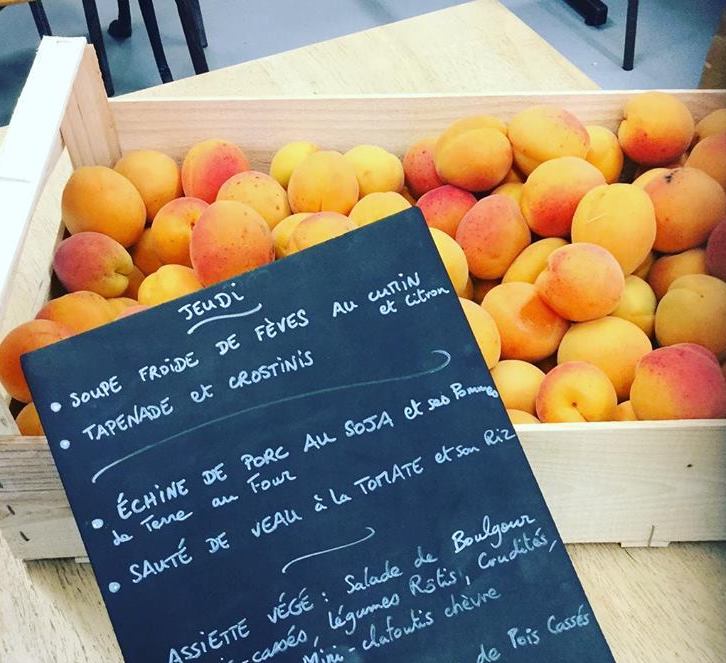 JEUDi
• SOUPE FROiDE DE FÈVES AU CUMIN
et Citron
• TAPENADE et CROSTINIS
• ÉCHINE DE PORC AU SOJA et ses Pommes
de Terre au Four
• SAUTÉ DE VEAU à la TOMATE et son Riz
ASSIETTE VÉGÉ : Salade de Boulgour
-cassés, légumes Rôtis, Crudités,
Mini-clafoutis chèvre
de Pois Cassés